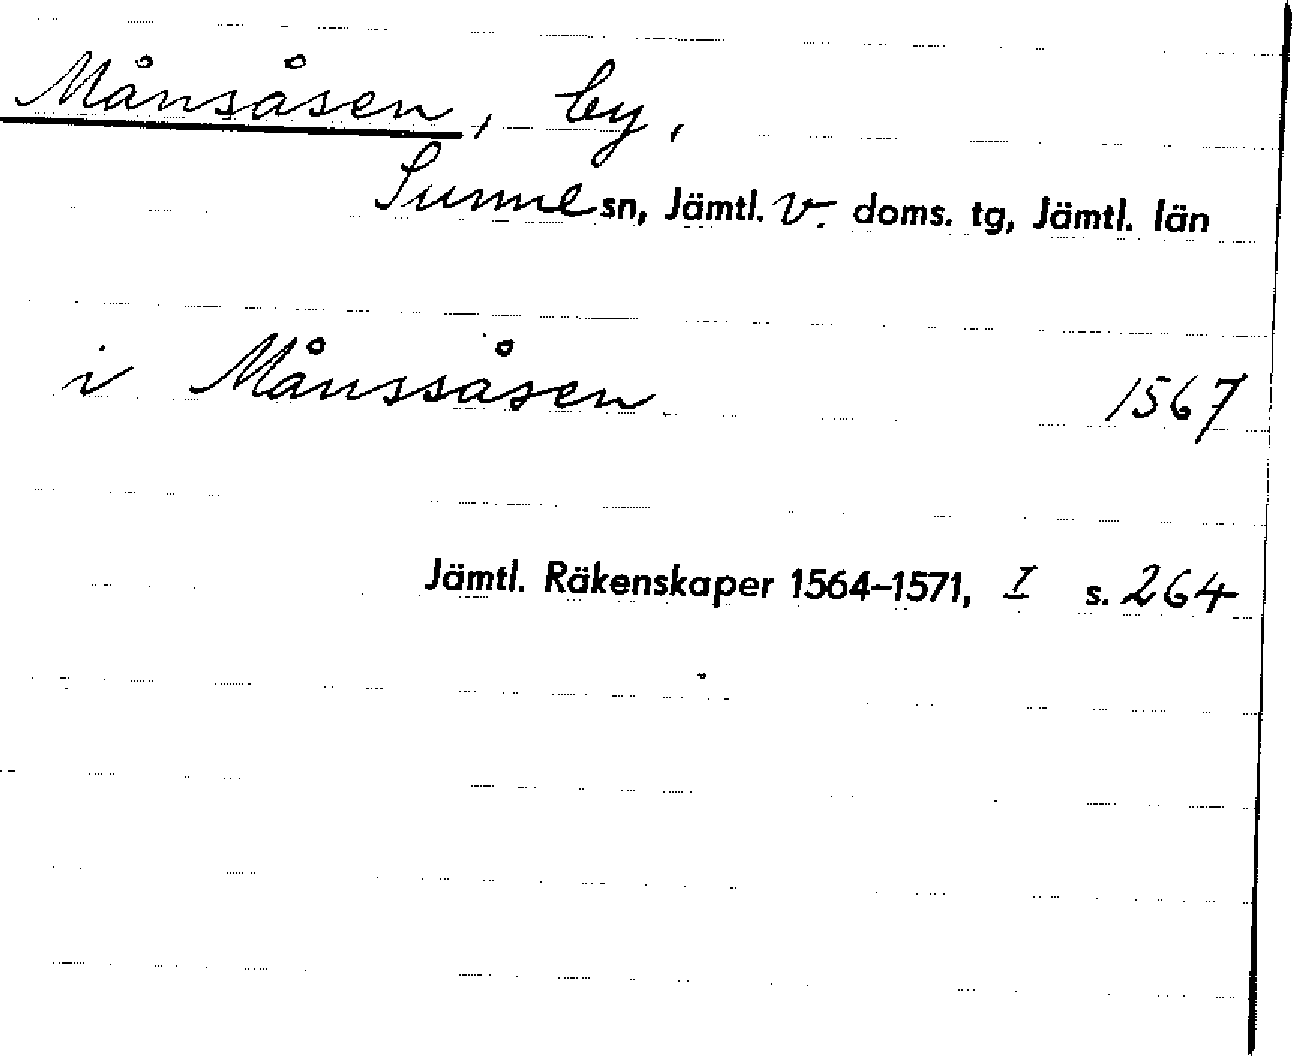 Månsåsen, by,
Sunne sn, Jämtl. v. doms. tg, Jämtl. län
i Månssåsen 1567
Jämtl. Räkenskaper 1564–1571, I s. 264